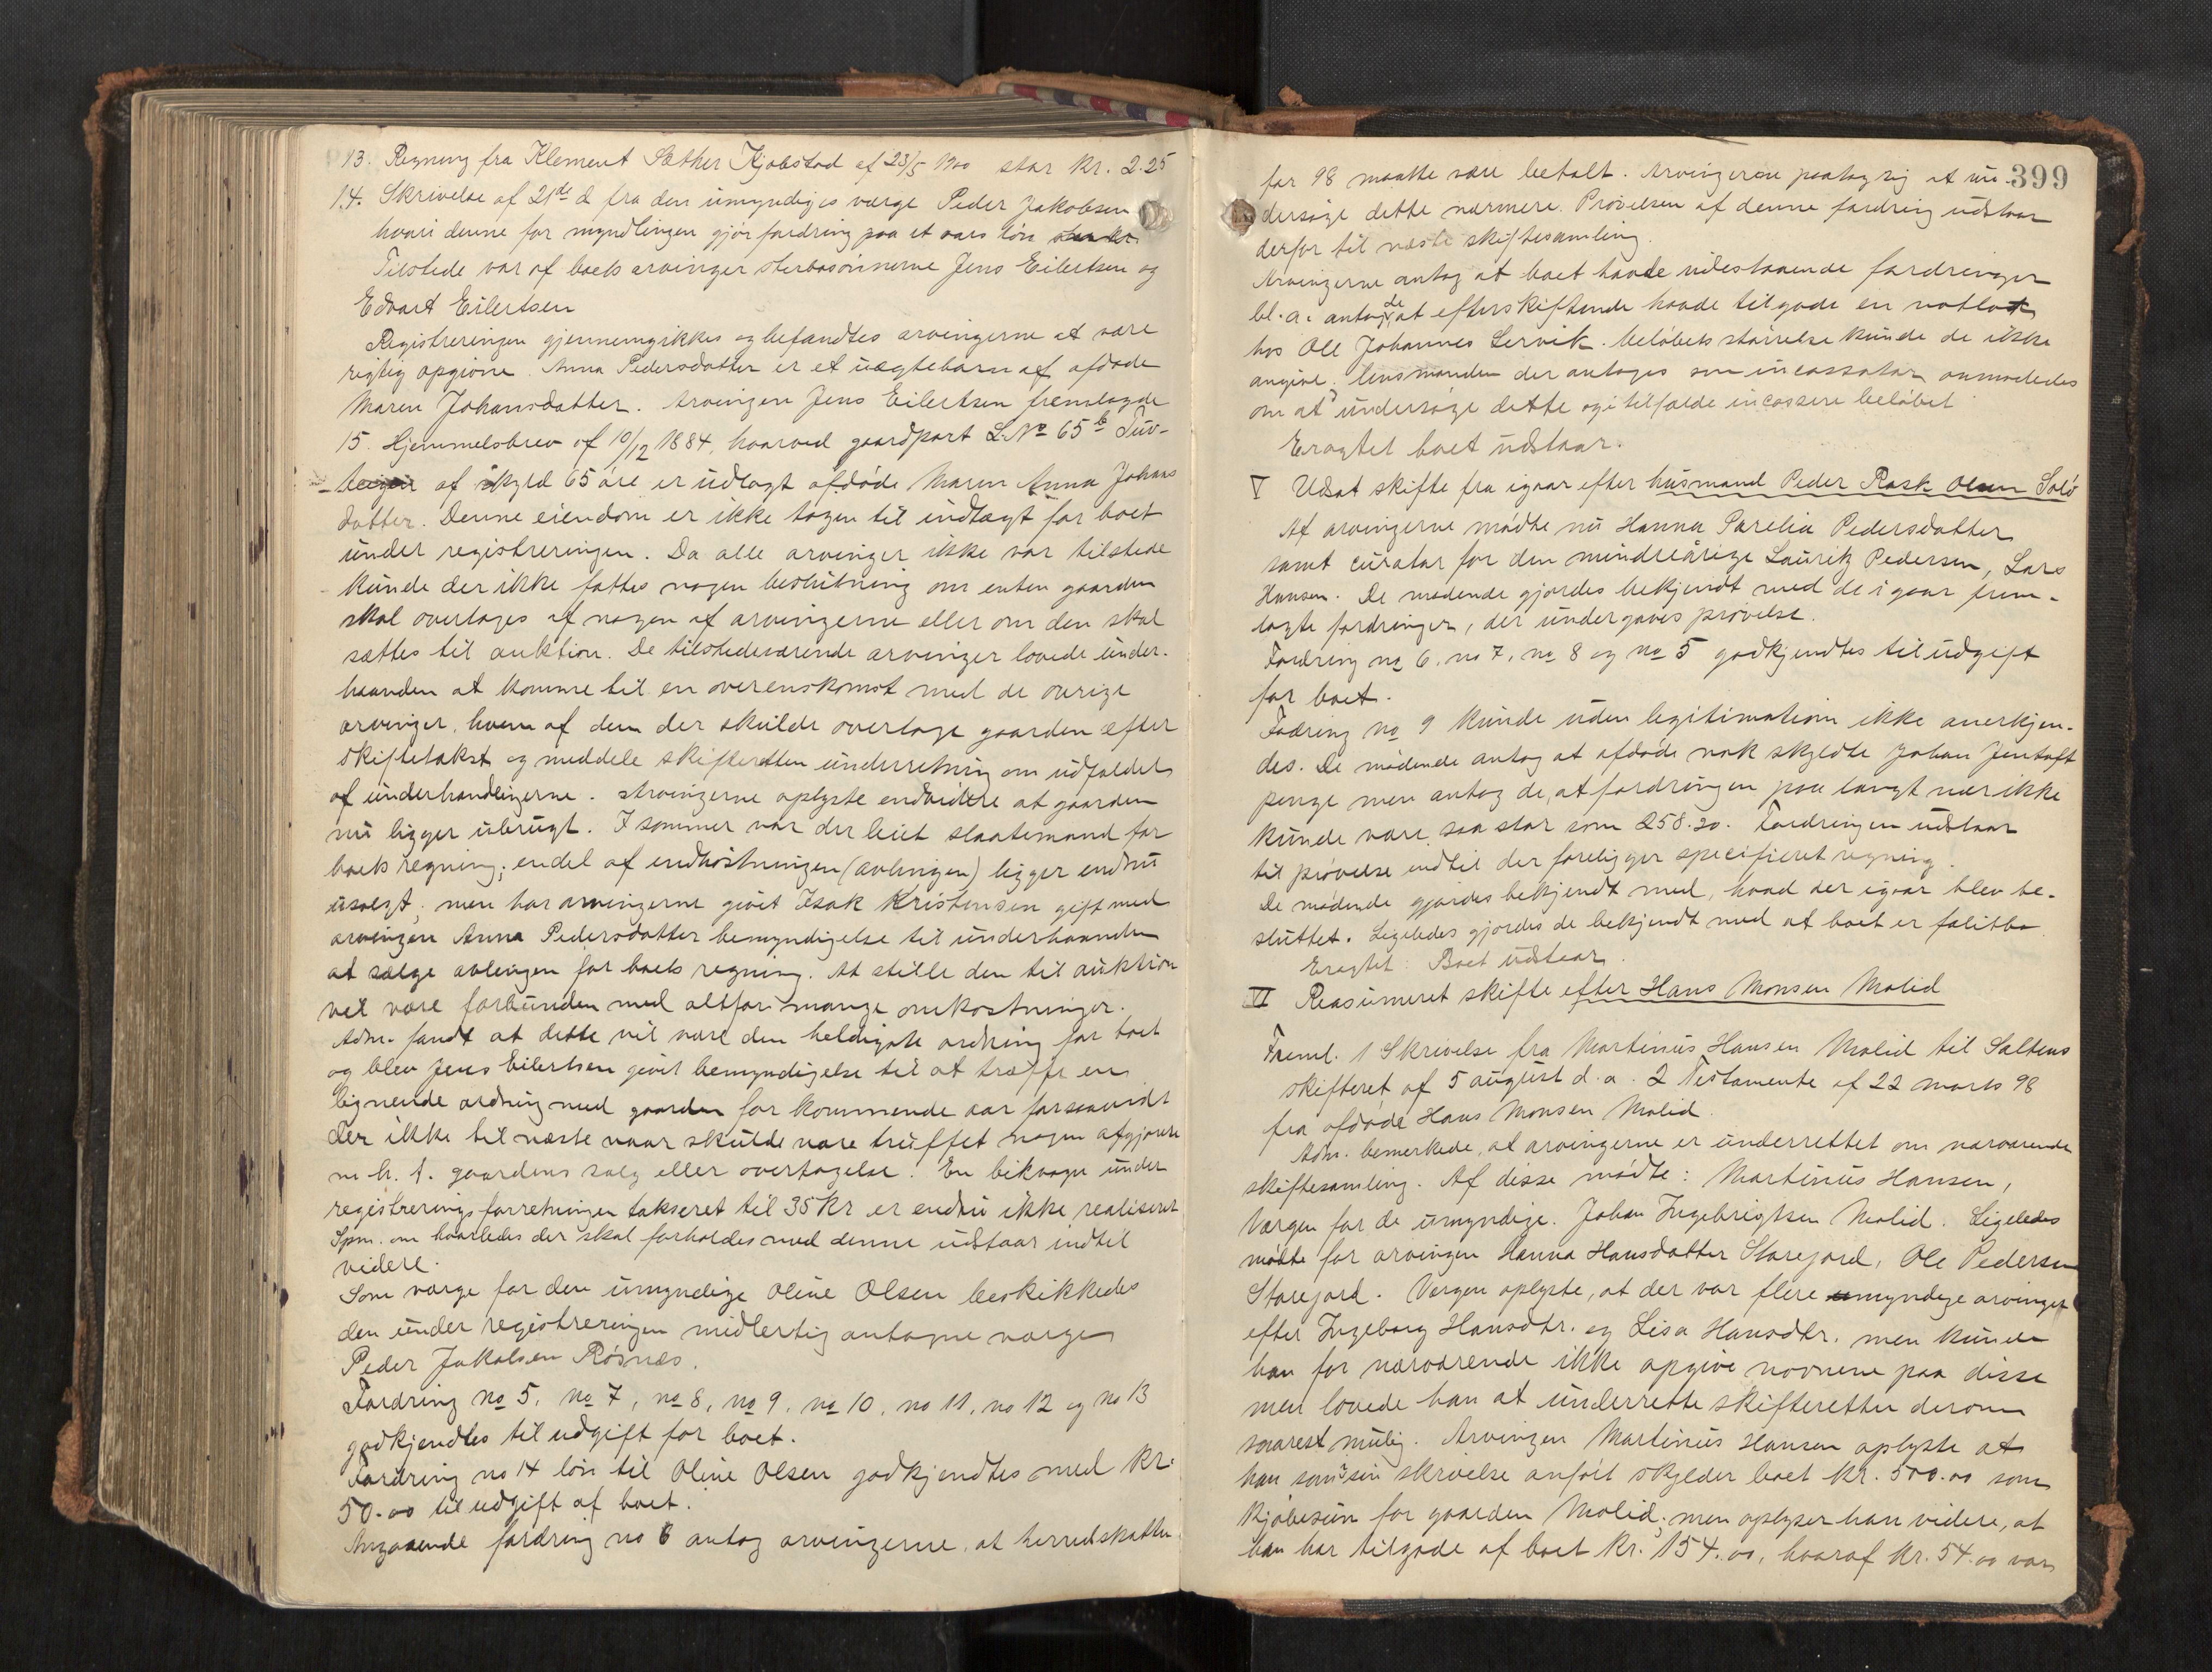 13. Regning fra Klement Sæther Kjobstad af 23/5 1900 stor kr. 2.25
14. Skrivelse af 21de d fra den umyndiges værge Peder Jakobsen
hvori denne for myndlingen gjør fordring paa et aars løn
Tilstede var af boets arvinger sterbosønnerne Jens Eilertsen og
Edvart Eilertsen
Registreringen gjennemgikkes og befandtes arvingerne at være
rigtig opgivne. Anna Pedersdatter er et uægtebarn af afdøde
Maren Johansdatter. Arvingen Jens Eilertsen fremlagde
15. Hjemmelsbrev af 10/12 1884, hvorved gaardpart L.No 65b Tuv-
af skyld 65 øre er udlagt afdøde Maren Anna Johans
datter. Denne eiendom er ikke tagen til indtægt for boet
under registreringen. Da alle arvinger ikke var tilstede
kunde der ikke fattes nogen beslutning om enten gaarden
skal overtages af nogen af arvingerne eller om den skal
sættes til auktion. De tilstedeværende arvinger lovede under-
haanden at komme til en overenskomst med de øvrige
arvinger, hvem af dem der skulde overtage gaarden efter
skiftetakst og meddele skifteretten underretning om udfaldet
af underhandlingerne. Arvingerne oplyste endvidere at gaarden
nu ligger ubrugt. I sommer var der leiet slaatemand for
boets regning; endel af indhøstningen (avlingen) ligger endnu
usolgt; men har arvingerne givet Isak Kristensen gift med
arvingen Anna Pedersdatter bemyndigelse til underhaanden
at sælge avlingen for boets regning. At stille den til auktion
vil være forbunden med altfor mange omkostninger.
Adm. fandt at dette vil være den heldigste ordning for boet
og blev Jens Eilertsen givet bemyndigelse til at træffe en
lignende ordning med gaarden for kommende aar forsaavidt
der ikke til næste vaar skulde være truffet nogen afgjørelse
m. h. t. gaardens salg eller overtagelse. En under
registreringsforretningen takseret til 35 kr er endnu ikke realiseret
Spm. om hvorledes der skal forholdes med denne udstaar indtil
videre.
Som værge for den umyndige Oline Olsen beskikkedes
den under registreringen midlertig antagne værge
Peder Jakobsen Røsnæs.
Fordring no 5, no 7, no 8, no 9, no 10, no 11, no 12 og no 13
godkjendtes til udgift for boet.
Fordring no 14 løn til Oline Olsen godkjendtes med kr.
50.00 til udgift af boet.
Angaaende fordring no 6 antog arvingerne, at herredskatten
399
for 98 maatte være betalt. Arvingerne paatog sig at un-
dersøge dette nærmere. Prøvelsen af denne fordring udstaar
derfor til næste skiftesamling.
Arvingerne antog at boet havde udestaaende fordringer
bl. a. antog de at efterskiftende havde tilgode en notlot
hos Ole Johannes Lervik. Beløbets størrelse kunde de ikke
angive. Lensmanden der antages som incassator anmodedes
om at undersøge dette og i tilfælde incassere beløbet
Eragtet boet udstaar.
V Udsat skifte fra igaar efter husmand Peder Rask Olsen Solø
Af arvingerne mødte nu Hanna Parelia Pedersdatter
samt curator for den mindreårige Lauritz Pedersen, Lars
Hansen. De mødende gjordes bekjendt med de i gaar frem-
lagte fordringer, der undergaves prøvelse.
Fordring no 6, no 7, no 8 og no 5 godkjendtes til udgift
for boet.
Fodring no 9 kunde uden legitimation ikke anerkjen-
des. De mødende antog at afdøde nok skyldte Johan Jentoft
penge men antog de, at fordringen paa langt nær ikke
kunde være saa stor som 258.20. Fordringen udstaar
til prøvelse indtil der foreligger specificeret regning.
De mødende gjordes bekjendt med, hvad der igaar blev be-
sluttet. Ligeledes gjordes de bekjendt med at boet er falitbo
Eragtet: Boet udstaar.
VI Reasumeret skifte efter Hans Monsen Molid
Freml. 1 Skrivelse fra Martinus Hansen Molid til Saltens
skifteret af 5 august d. a. 2 Testamente af 22 marts 98
fra afdøde Hans Monsen Molid.
Adm. bemerkede, at arvingerne er underrettet om nærværende
skiftesamling. Af disse mødte: Martinus Hansen,
Værgen for de umyndige, Johan Ingebrigtsen Molid. Ligeledes
mødte for arvingen Hanna Hansdatter Storejord, Ole Pedersen
Storejord. Vergen oplyste, at der var flere umyndige arvinger
efter Ingeborg Hansdtr. og Lisa Hansdtr. men kunde
han for nærværende ikke opgive navnene paa disse
men lovede han at underrette skifteretten derom
snarest mulig. Arvingen Martinus Hansen oplyste at
han som i sin skrivelse anført skylder boet kr. 500.00 som
kjøbesum for gaarden Molid; men oplyser han videre, at
han har tilgode af boet kr. 154.00, hvoraf kr. 54.00 var